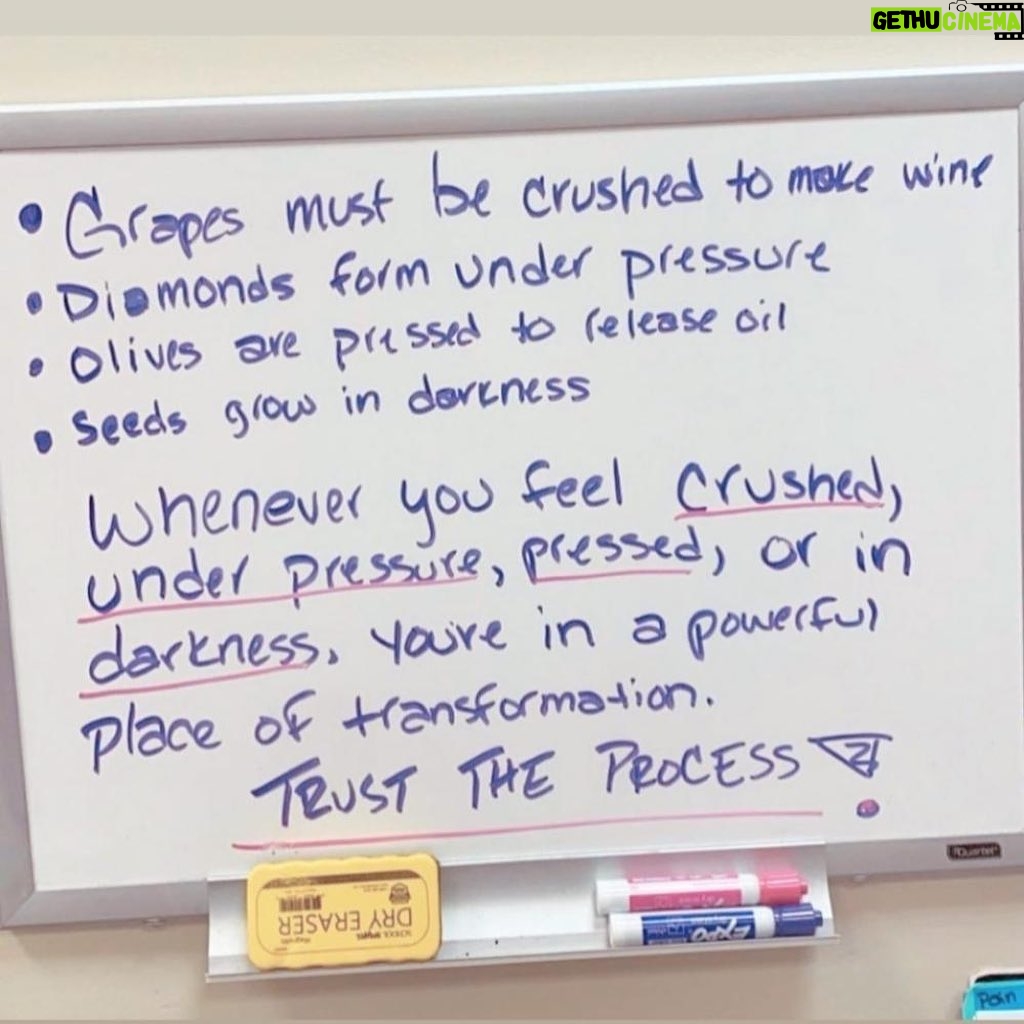 GETHU CINEMA
• Grapes must be crushed to make wine
• Diamonds form under pressure
• Olives are pressed to release oil
• Seeds grow in darkness
Whenever you feel crushed,
under pressure, pressed, or in
darkness, you're in a powerful
place of transformation.
TRUST THE PROCESS!
Quartet
DRY ERASER
EXPO
Pain